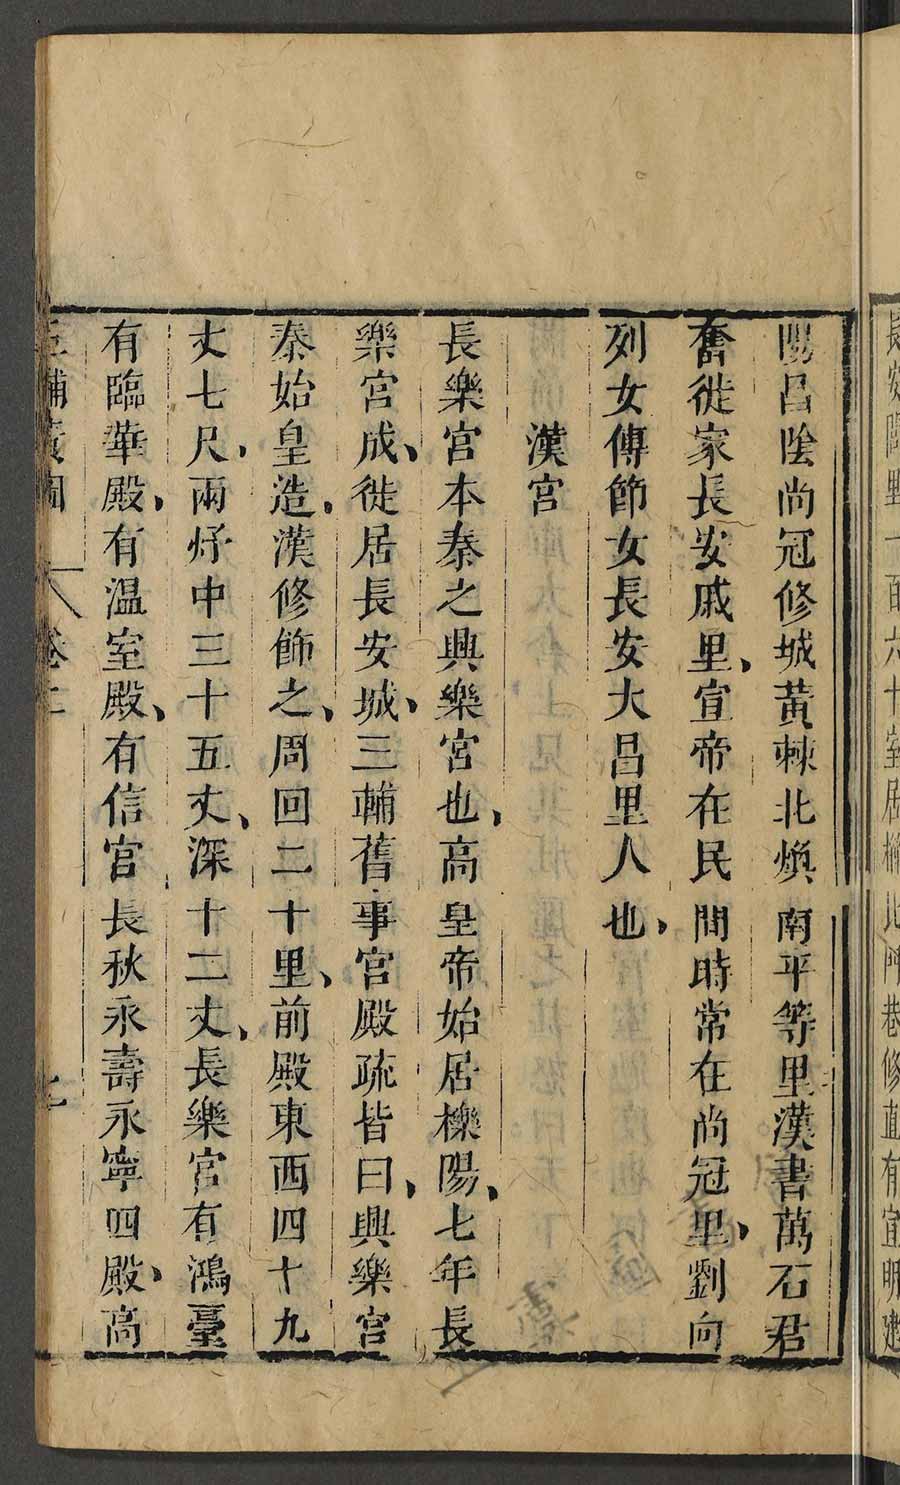 長安閭里一百六十室居櫛比門巷修直有宣明建
陽昌陰尚冠修城黃棘北煥南平等里漢書萬石君
奮徙家長安戚里、宣帝在民間時常在尚冠里、劉向
列女傳節女長安大昌里人也、
漢宮
長樂宮本秦之興樂宮也、高皇帝始居櫟陽、七年長
樂宮成、徙居長安城、三輔舊事宮殿疏皆曰、興樂宮
秦始皇造、漢修飾之、周回二十里、前殿東西四十九
丈七尺、兩𣏌中三十五丈、深十二丈、長樂宮有鴻臺
有臨華殿、有温室殿、有信宮長秋永壽永寧四殿、高
三輔黃圖 卷二 七